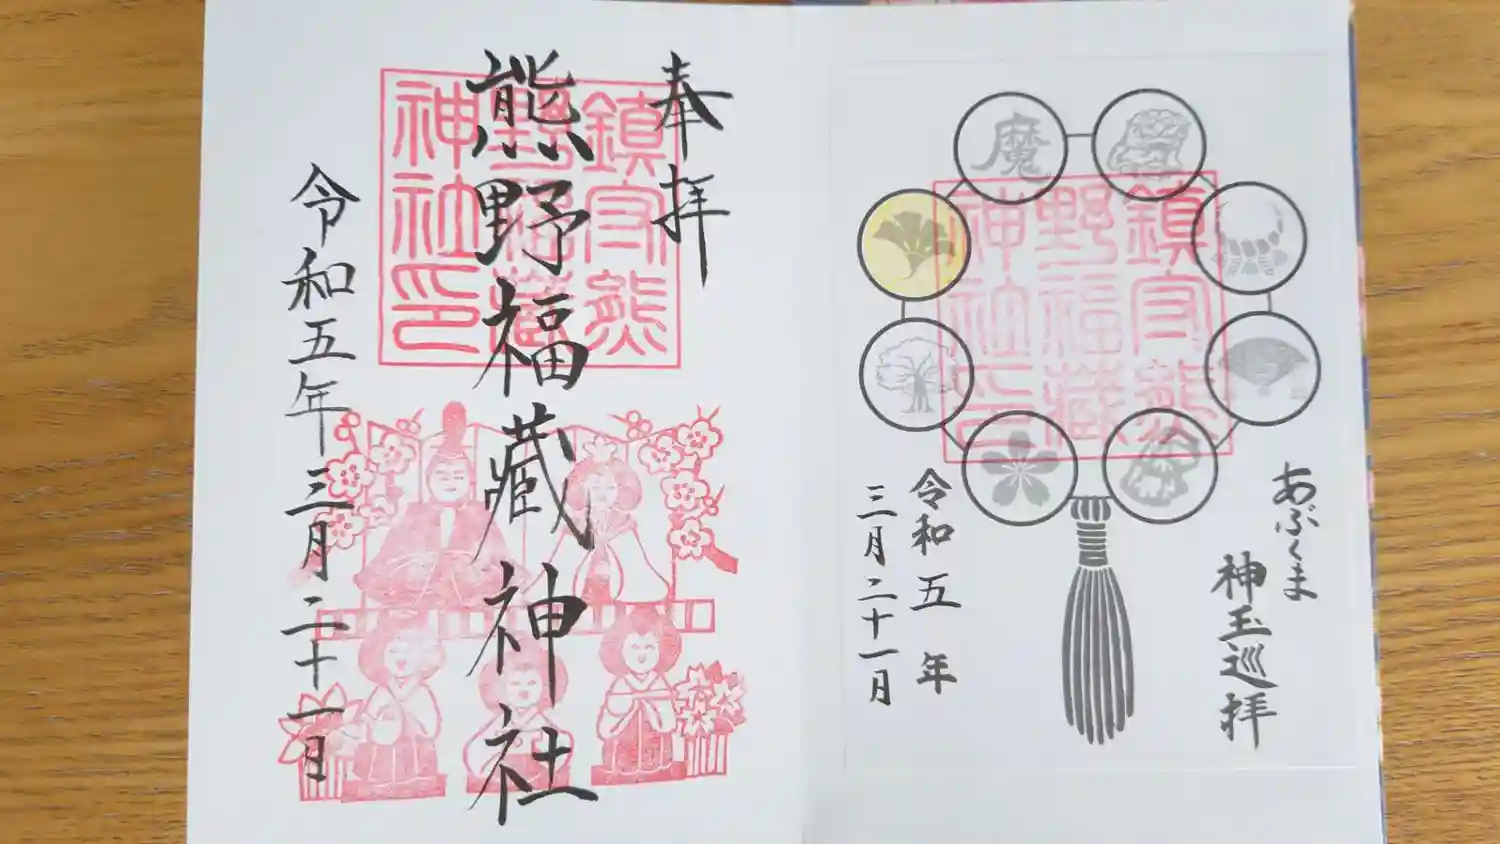 奉拝
熊野福藏神社
令和五年三月二十一日
鎮守熊
野福藏
神社印
あぶくま
神玉巡拝
令和五年
三月二十一日
魔
鎮守熊
野福藏
神社印